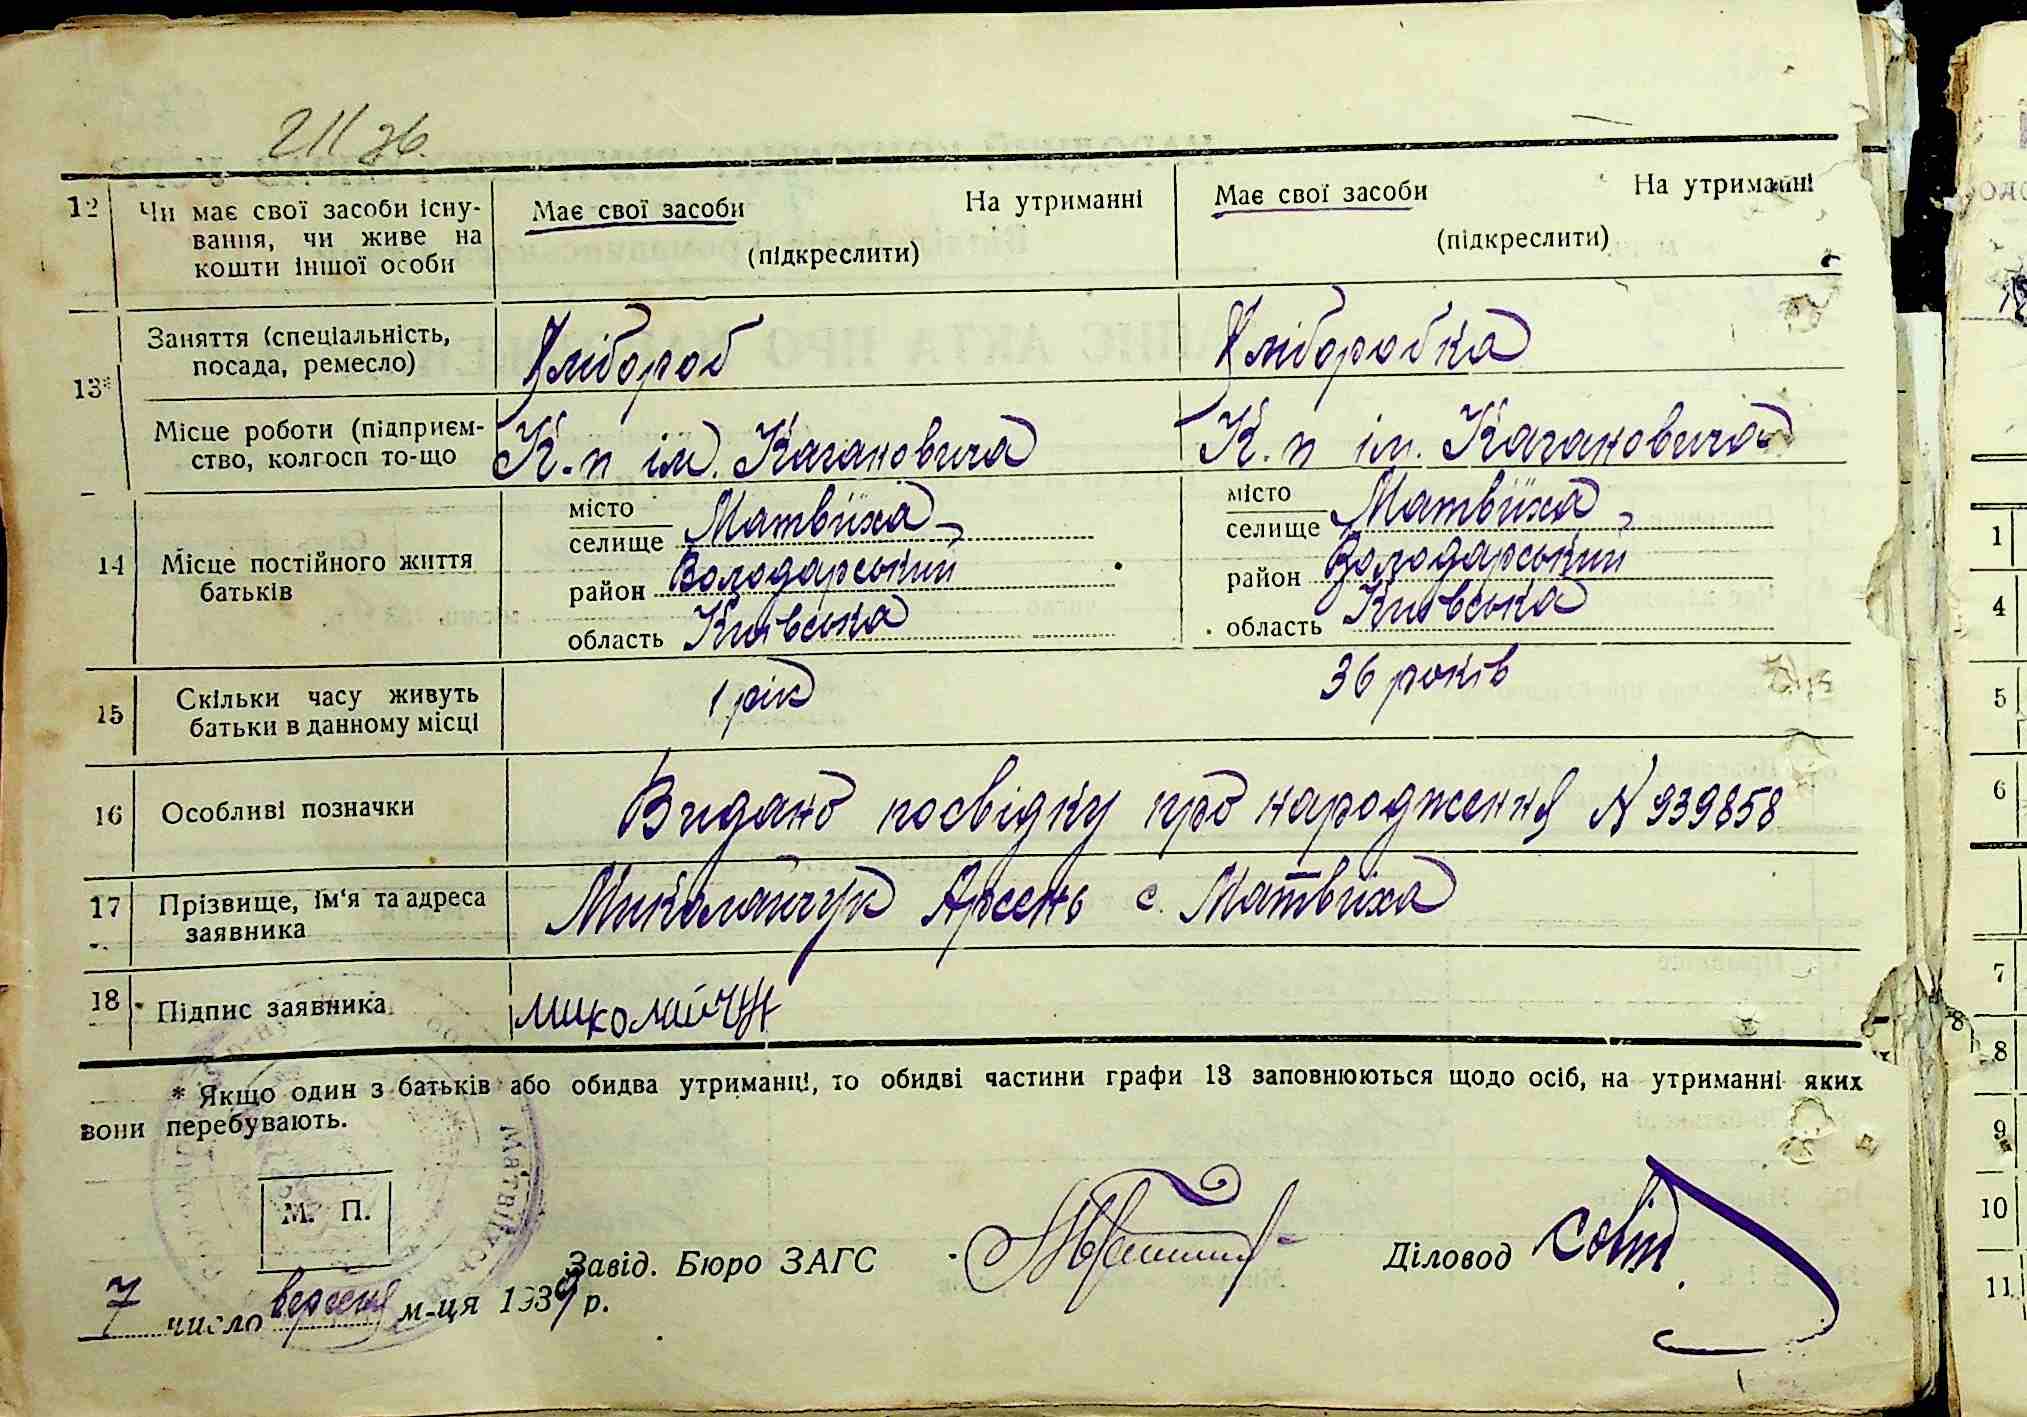 211 зв.
12 Чи має свої засоби існу- Має свої засоби На утриманні Має свої засоби На утриманні
вання, чи живе на (підкреслити) (підкреслити)
кошти іншої особи
13* Заняття (спеціальність, Хлібороб Хліборобка
посада, ремесло)
Місце роботи (підприєм- К-п ім. Кагановича К.п ім. Кагановича
ство, колгосп то-що
14 Місце постійного життя батьків
місто
селище Матвїиха
район Володарський
область Київська
місто
селище Матвїиха
район Володарський
область Київська
15 Скільки часу живуть 1 рік 36 років
батьки в данному місці
16 Особливі позначки Видано посвідку про народження N 939858
17 Прізвище, ім'я та адреса Миколайчук Арсень с. Матвіиха
заявника
18 Підпис заявника миколайчук
* Якщо один з батьків або обидва утриманці, то обидві частини графи 13 заповнюються щодо осіб, на утриманні яких
вони перебувають.
М. П.
Завід. Бюро ЗАГС Діловод
7 число вересня м-ця 1939 р.
1
4
5
6
7
8
9
10
11